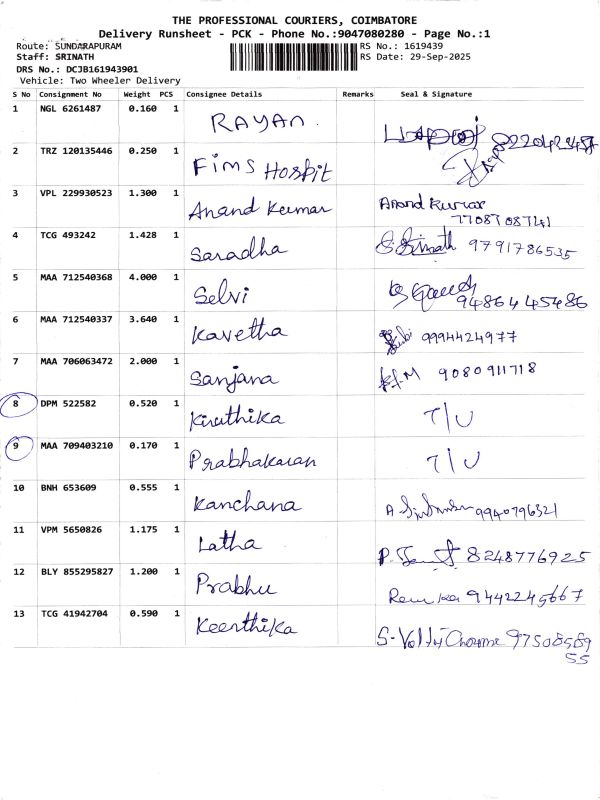 THE PROFESSIONAL COURIERS, COIMBATORE
Delivery Runsheet - PCK - Phone No.:9047080280 - Page No.:1
Route: SUNDARAPURAM
RS No.: 1619439
Staff: SRINATH
RS Date: 29-Sep-2025
DRS No.: DCJB161943901
Vehicle: Two Wheeler Delivery
S No Consignment No Weight PCS Consignee Details Remarks Seal & Signature
1 NGL 6261487 0.160 1 RAYAN.
2 TRZ 120135446 0.250 1 Fims Hospit
3 VPL 229930523 1.300 1 Anand Kumar Anand Kumar
7708708741
4 TCG 493242 1.428 1 Saradha S Srinath 9791786535
5 MAA 712540368 4.000 1 Selvi 9486445486
6 MAA 712540337 3.640 1 Kavetha 9994424977
7 MAA 706063472 2.000 1 Sanjana 9080911718
8 DPM 522582 0.520 1 Kiruthika T/U
9 MAA 709403210 0.170 1 Prabhakaran T/U
10 BNH 653609 0.555 1 Kanchana A 9940796321
11 VPM 5650826 1.175 1 Latha P. 8248776925
12 BLY 855295827 1.200 1 Prabhu 9442245667
13 TCG 41942704 0.590 1 Keerthika 97508589
55